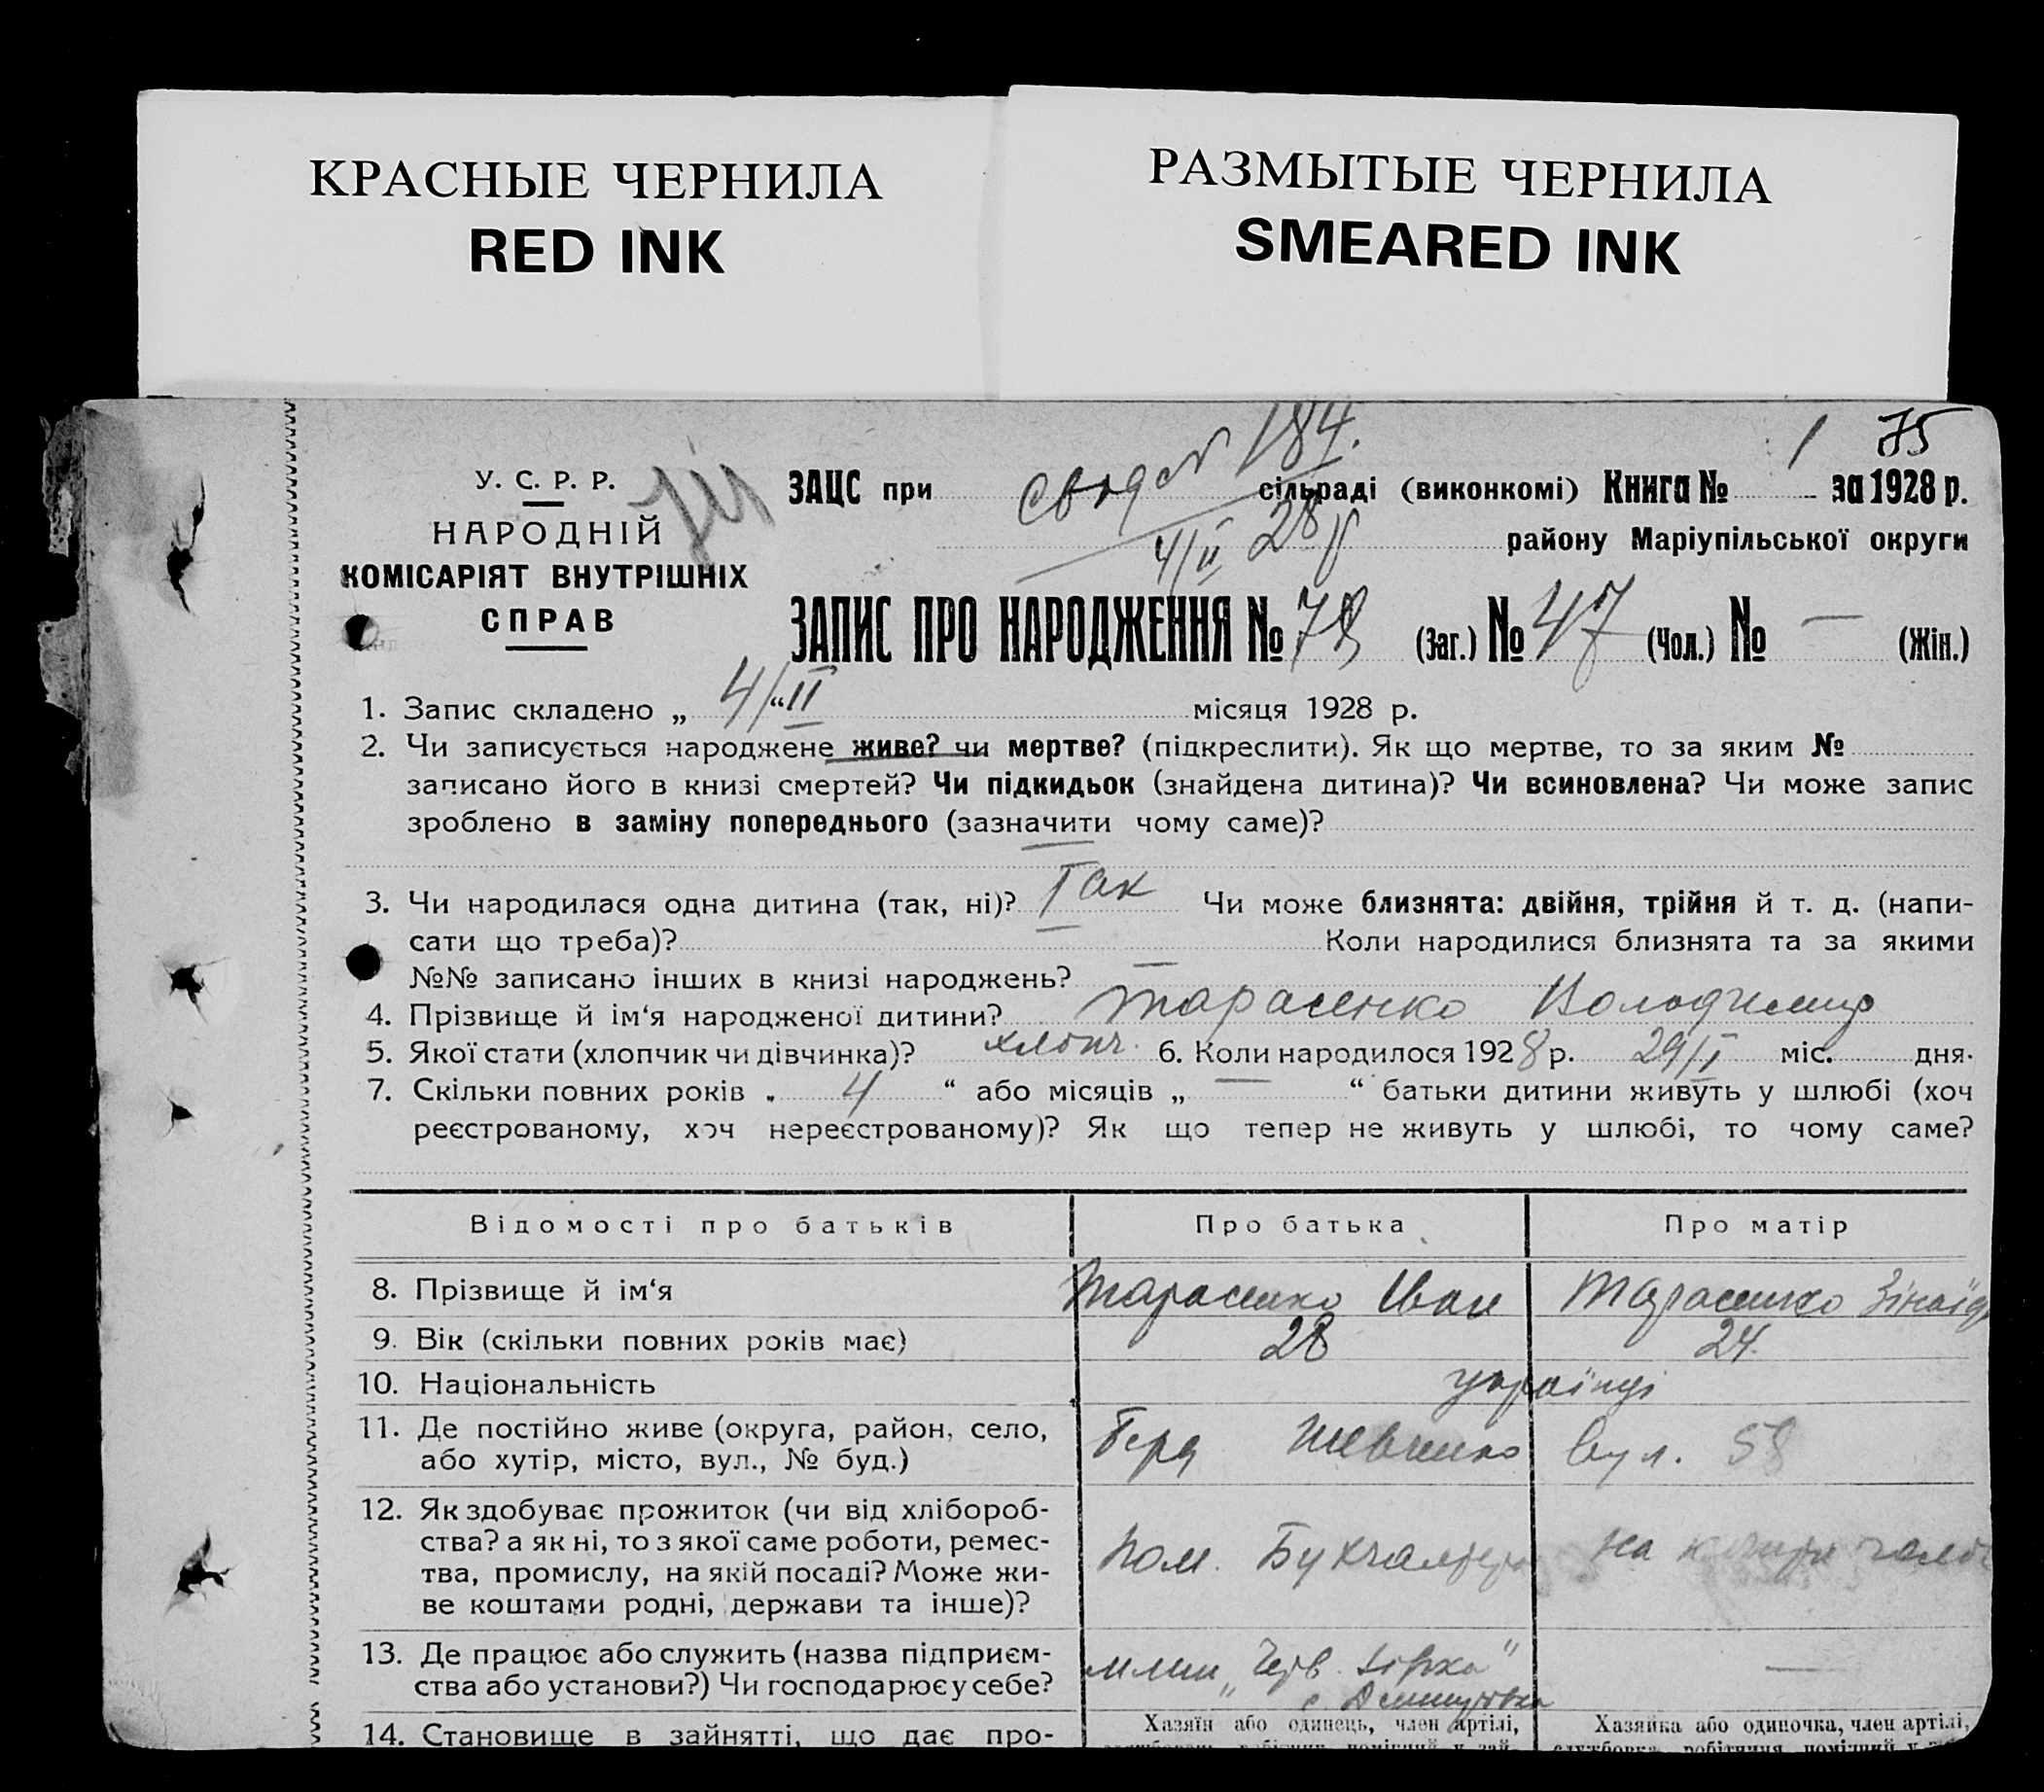 КРАСНЫЕ ЧЕРНИЛА
RED INK
РАЗМЫТЫЕ ЧЕРНИЛА
SMEARED INK
75
184.
У. С. Р. Р.
НАРОДНІЙ
КОМІСАРІЯТ ВНУТРІШНІХ
СПРАВ
ЗАЦС при сільраді (виконкомі) Книга № 1 за 1928 р.
4/II 28 р
району Маріупільської округи
ЗАПИС ПРО НАРОДЖЕННЯ № 78 (Заг.) № 47 (Чол.) № — (Жін.)
1. Запис складено „ 4/“ II місяця 1928 р.
2. Чи записується народжене живе? чи мертве? (підкреслити). Як що мертве, то за яким №
записано його в книзі смертей? Чи підкидьок (знайдена дитина)? Чи всиновлена? Чи може запис
зроблено в заміну попереднього (зазначити чому саме)?
—
3. Чи народилася одна дитина (так, ні)? Так Чи може близнята: двійня, трійня й т. д. (напи-
сати що треба)? — Коли народилися близнята та за якими
№№ записано інших в книзі народжень? —
4. Прізвище й ім‘я народженої дитини? Тарасенко Володимир
5. Якої стати (хлопчик чи дівчинка)? хлопч. 6. Коли народилося 1928 р. 29/I міс. дня.
7. Скільки повних років „ 4 “ або місяців „ — “ батьки дитини живуть у шлюбі (хоч
реєстрованому, хоч нереєстрованому)? Як що тепер не живуть у шлюбі, то чому саме?
Відомості про батьків Про батька Про матір
8. Прізвище й ім‘я Тарасенко Іван Тарасенко Зінаїда
9. Вік (скільки повних років має) 28 24.
10. Національність українці
11. Де постійно живе (округа, район, село,
або хутір, місто, вул., № буд.) Шевченко вул. 58
12. Як здобуває прожиток (чи від хлібороб-
ства? а як ні, то з якої саме роботи, ремес-
тва, промислу, на якій посаді? Може жи-
ве коштами родні, держави та інше)? Пом. Бухгалтера на
13. Де працює або служить (назва підприєм-
ства або установи?) Чи господарює у себе? млин „Черв. Зірка“ —
14. Становище в зайнятті, що дає про-
Хазяїн або одинець, член артілі,
Хазяйка або одиночка, член артілі,